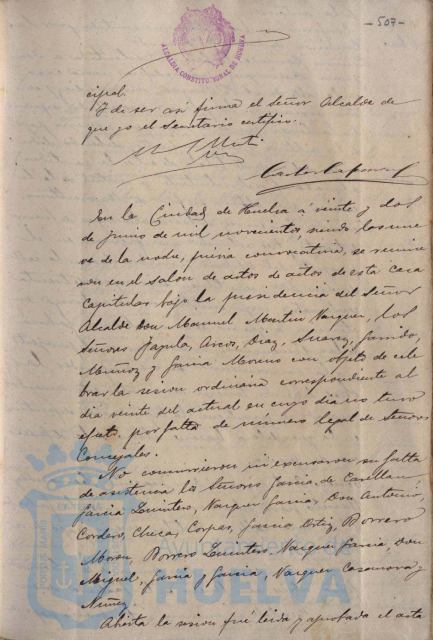 - 507 -
ALCALDIA CONSTITUCIONAL DE HUELVA
cipal.
Y de ser así firma el Señor Alcalde de
que yo el Secretario certifico.
En la Ciudad de Huelva á veinte y dos
de Junio de mil novecientos, siendo las nue
ve de la noche, previa convocatoria, se reunie
ron en el salon de actos de actos de esta casa
Capitular bajo la presidencia del Señor
Alcalde Don Manuel Martin Vazquez, los
Señores Arcos, Diaz, Suarez, Garrido,
Muñoz y Garcia Moreno con objeto de cele
brar la sesion ordinaria correspondiente al
dia veinte del actual en cuyo dia no tuvo
efecto por falta de número legal de Señores
Concejales.
No concurrieron ni excusaron su falta
de asistencia los Señores Garcia de
Garcia Quintero, Vazquez Garcia, Don Antonio,
Cordero, Checa, Corpas, Garcia Ortiz, Borrero
Moron, Borrero Quintero, Vazquez Garcia, Don
Miguel, Garcia y Garcia, Vazquez Casanova y
Nuñez.
Abierta la sesion fué leida y aprobada el acta
HUELVA